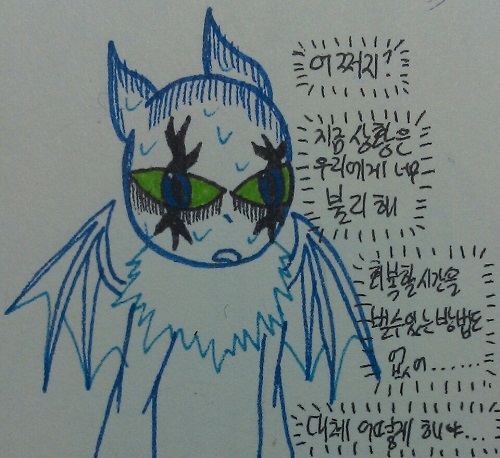 어쩌지?
지금 상황은
우리에게 너무
불리해
회복할시간을
벌수있는방법도
없어......
대체 어떻게 해야...